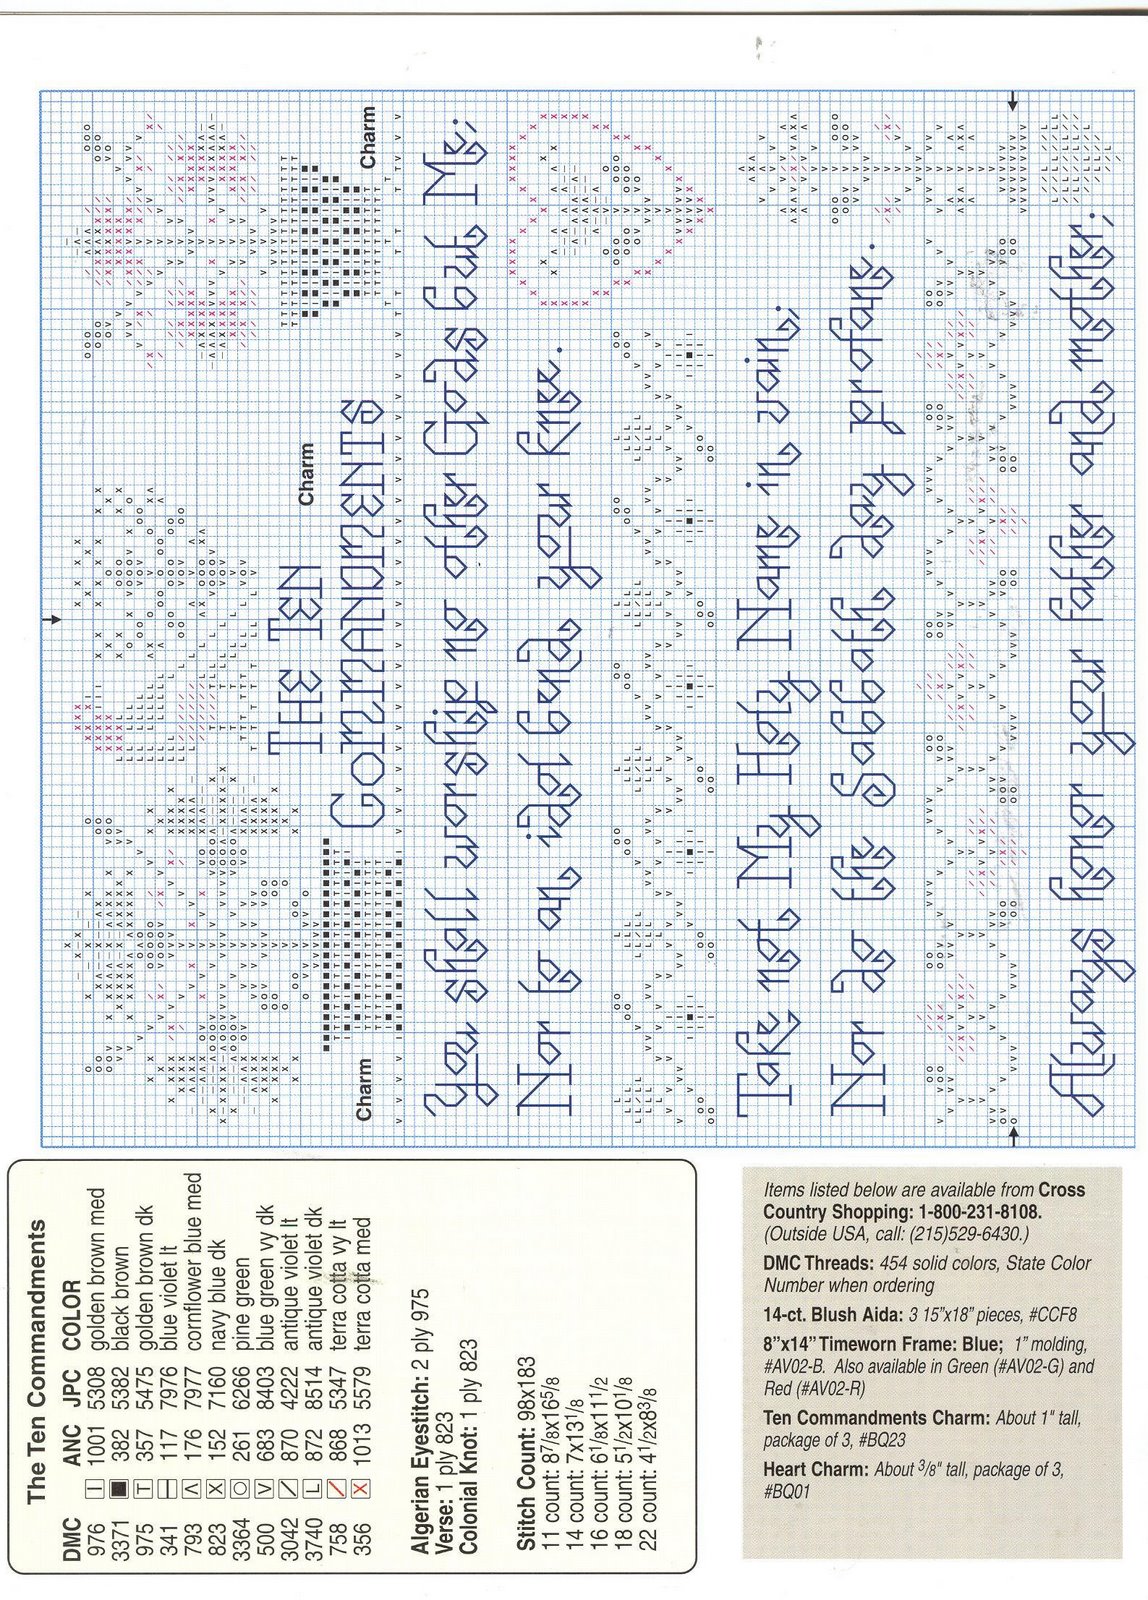 Charm
Charm
Charm
THE TEN
COMMANDMENTS
You shall worship no other Gods but Me;
Nor to an idol bend your knee.
Take not My Holy Name in vain;
Nor do the Sabbath day profane.
Always honor your father and mother,
The Ten Commandments
DMC ANC JPC COLOR
976 1001 5308 golden brown med
3371 382 5382 black brown
975 357 5475 golden brown dk
341 117 7976 blue violet lt
793 176 7977 cornflower blue med
823 152 7160 navy blue dk
3364 261 6266 pine green
500 683 8403 blue green vy dk
3042 870 4222 antique violet lt
3740 872 8514 antique violet dk
758 868 5347 terra cotta vy lt
356 1013 5579 terra cotta med
Algerian Eyestitch: 2 ply 975
Verse: 1 ply 823
Colonial Knot: 1 ply 823
Stitch Count: 98x183
11 count: 8 7/8x16 5/8
14 count: 7x13 1/8
16 count: 6 1/8x11 1/2
18 count: 5 1/2x10 1/8
22 count: 4 1/2x8 3/8
Items listed below are available from Cross
Country Shopping: 1-800-231-8108.
(Outside USA, call: (215)529-6430.)
DMC Threads: 454 solid colors, State Color
Number when ordering
14-ct. Blush Aida: 3 15"x18" pieces, #CCF8
8"x14" Timeworn Frame: Blue; 1" molding,
#AV02-B. Also available in Green (#AV02-G) and
Red (#AV02-R)
Ten Commandments Charm: About 1" tall,
package of 3, #BQ23
Heart Charm: About 3/8" tall, package of 3,
#BQ01